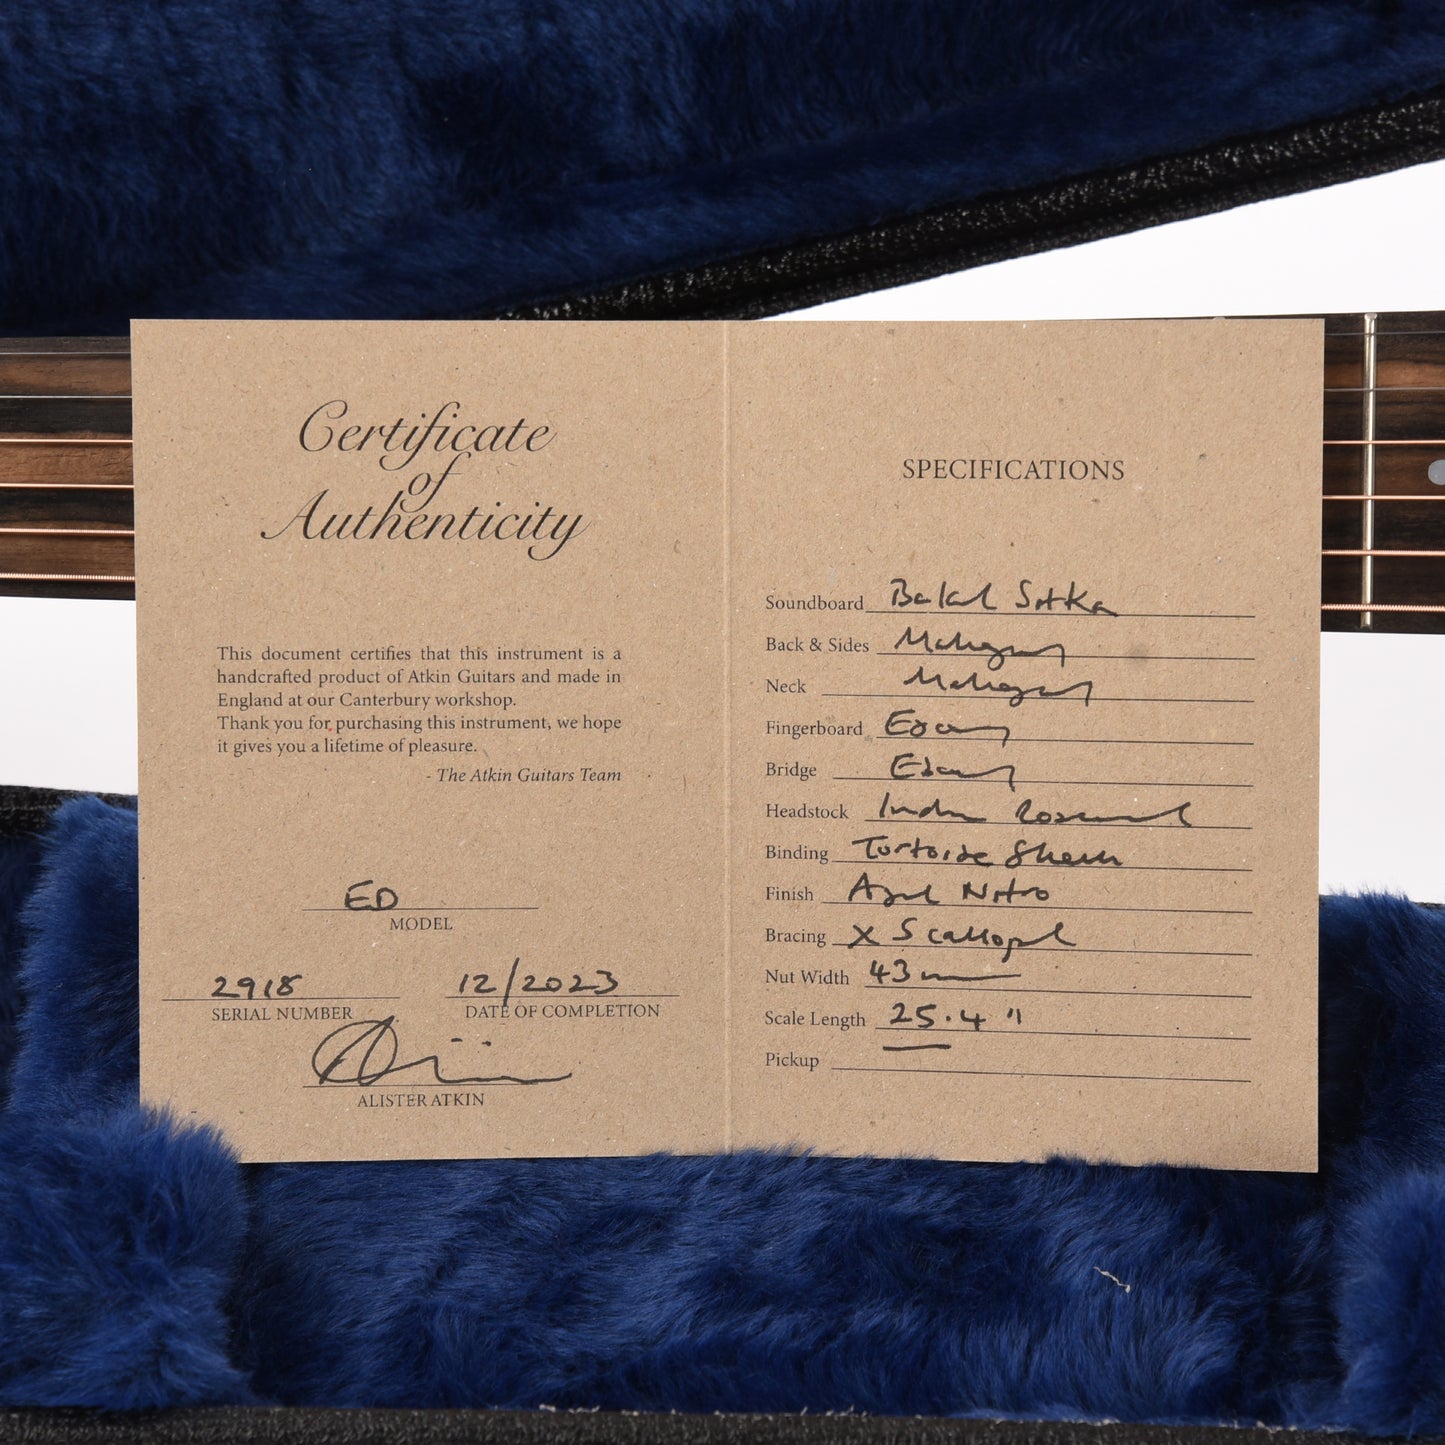 Certificate
of
Authenticity
This document certifies that this instrument is a
handcrafted product of Atkin Guitars and made in
England at our Canterbury workshop.
Thank you for purchasing this instrument, we hope
it gives you a lifetime of pleasure.
- The Atkin Guitars Team
ED
MODEL
2918
SERIAL NUMBER
12/2023
DATE OF COMPLETION
ALISTER ATKIN
SPECIFICATIONS
Soundboard Baked Sitka
Back & Sides Mahogany
Neck Mahogany
Fingerboard Ebony
Bridge Ebony
Headstock Indian Rosewood
Binding Tortoise
Finish Aged Nitro
Bracing X Scalloped
Nut Width 43mm
Scale Length 25.4"
Pickup